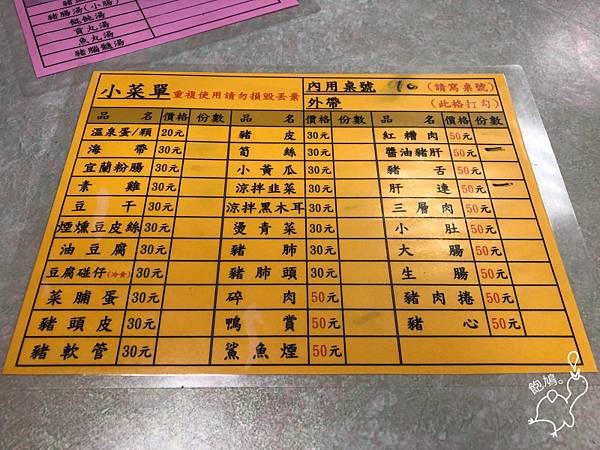 豬腸湯(小腸)
餛飩湯
貢丸湯
魚丸湯
豬腦髓湯
小菜單 重複使用請勿損毀丟棄 內用桌號 10 (請寫桌號)
外帶 (此格打勾)
品名 價格 份數 品名 價格 份數 品名 價格 份數
溫泉蛋/顆 20元 豬皮 30元 紅糟肉 50元
海帶 30元 筍絲 30元 醬油豬肝 50元 一
宜蘭粉腸 30元 小黃瓜 30元 豬舌 50元
素雞 30元 涼拌韭菜 30元 肝連 50元 一
豆干 30元 涼拌黑木耳 30元 三層肉 50元
煙燻豆皮絲 30元 燙青菜 30元 小肚 50元
油豆腐 30元 豬肺 30元 大腸 50元
豆腐碰仔(冷食) 30元 豬肺頭 30元 生腸 50元
菜脯蛋 30元 碎肉 50元 豬肉捲 50元
豬頭皮 30元 鴨賞 50元 豬心 50元
豬軟管 30元 鯊魚煙 50元
飽鳩。